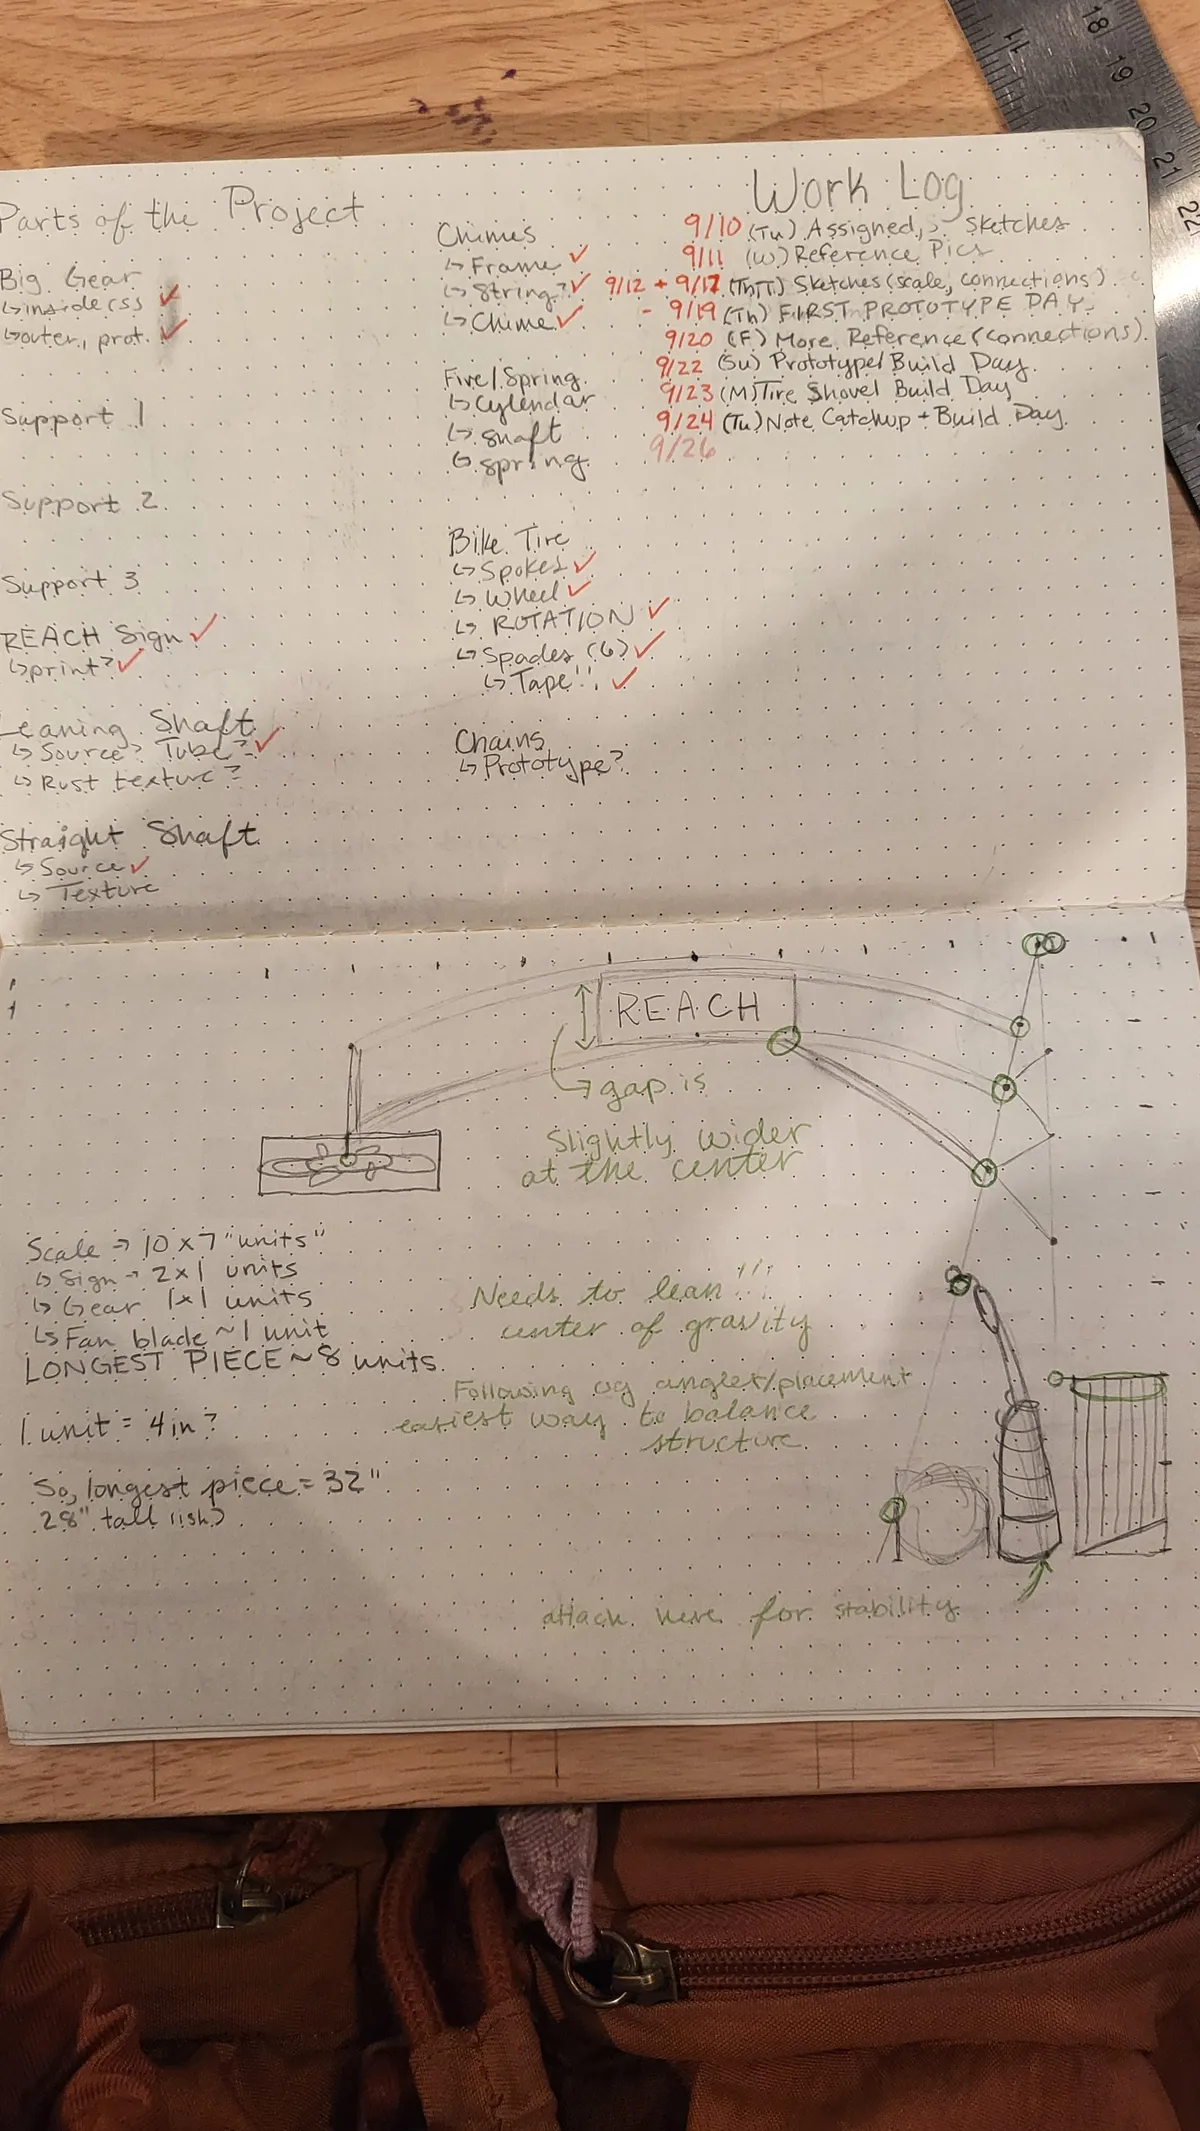 Parts of the Project
Big Gear
↳ inside (ss ✓
↳ outer, prot. ✓
Support 1
Support 2
Support 3
REACH Sign ✓
↳ print? ✓
Leaning Shaft
↳ Source? Tube? ✓
↳ Rust texture?
Straight Shaft
↳ Source ✓
↳ Texture
Chimes
↳ Frame ✓
↳ String? ✓
↳ Chime ✓
Fire/Spring
↳ Cylendar
↳ Shaft
↳ Spring
Bike Tire
↳ Spokes ✓
↳ Wheel ✓
↳ ROTATION ✓
↳ Spades (6) ✓
↳ Tape!! ✓
Chains
↳ Prototype?
Work Log
9/10 (Tu) Assigned, Sketches
9/11 (W) Reference Pics
9/12 + 9/17 (Th Ti) Sketches (scale, connections)
- 9/19 (Th) FIRST PROTOTYPE DAY
9/20 (F) More Reference (connections)
9/22 (Su) Prototype/Build Day
9/23 (M) Tire Shovel Build Day
9/24 (Tu) Note Catchup + Build Day
9/26
REACH
↳ gap is
slightly wider
at the center
Scale → 10 x 7 "units"
↳ Sign → 2x1 units
↳ Gear 1x1 units
↳ Fan blade ~1 unit
LONGEST PIECE ~ 8 units
1 unit = 4in?
So, longest piece = 32"
28" tall (ish)
Needs to lean!!!
center of gravity
Following og angles/placement
easiest way to balance
structure
attach here for stability
11
18
19
20
21
22